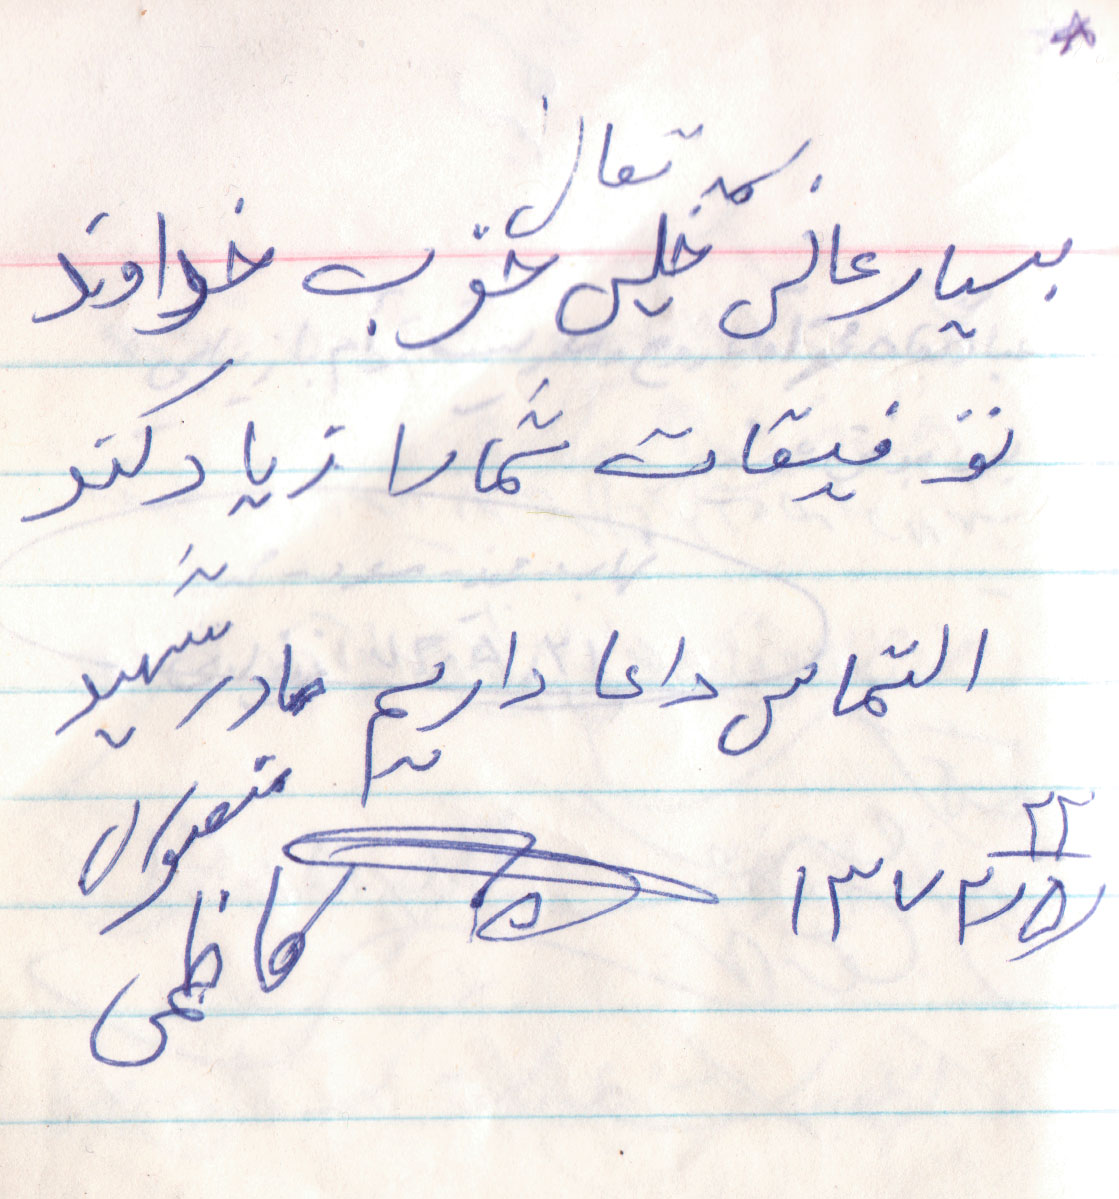 بسمه تعالی
بسیار عالی خیلی خوب خداوند
توفیقات شما را زیاد کند
التماس داعا داریم مادر شهید
۲۲
کاظمی